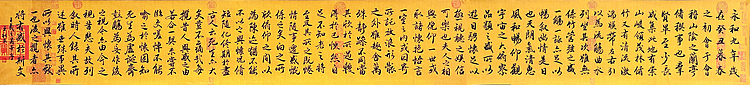 永和九年歲
在癸丑暮春
之初會于會
稽山陰之蘭亭
脩禊事也群
賢畢至少長
咸集此地有崇
山峻領茂林脩
竹又有清流激
湍映帶左右引
以為流觴曲水
列坐其次雖無
絲竹管弦之盛
一觴一詠亦足以
暢敘幽情是日
也天朗氣清惠
風和暢仰觀
宇宙之大俯察
品類之盛所以
遊目騁懷足以
極視聽之娛信
可樂也夫人之相
與俯仰一世或
取諸懷抱悟言
一室之內或因寄
所託放浪形骸
之外雖趣舍萬
殊靜躁不同當
其欣於所遇暫
得於己快然自
足不知老之將
至及其所之既惓
情隨事遷感慨
係之矣向之所
欣俛仰之間以
為陳迹猶不能
不以之興懷況脩
短隨化終期於盡
古人云死生亦大
矣豈不痛哉每
攬昔人興感之由
若合一契未嘗不
臨文嗟悼不能
喻之於懷固知
一死生為虛誕齊
彭殤為妄作後
之視今亦由今之
視昔悲夫故列
敘時人錄其所
述雖世殊事異
所以興懷其致一
也後之攬者亦
將有感於斯文